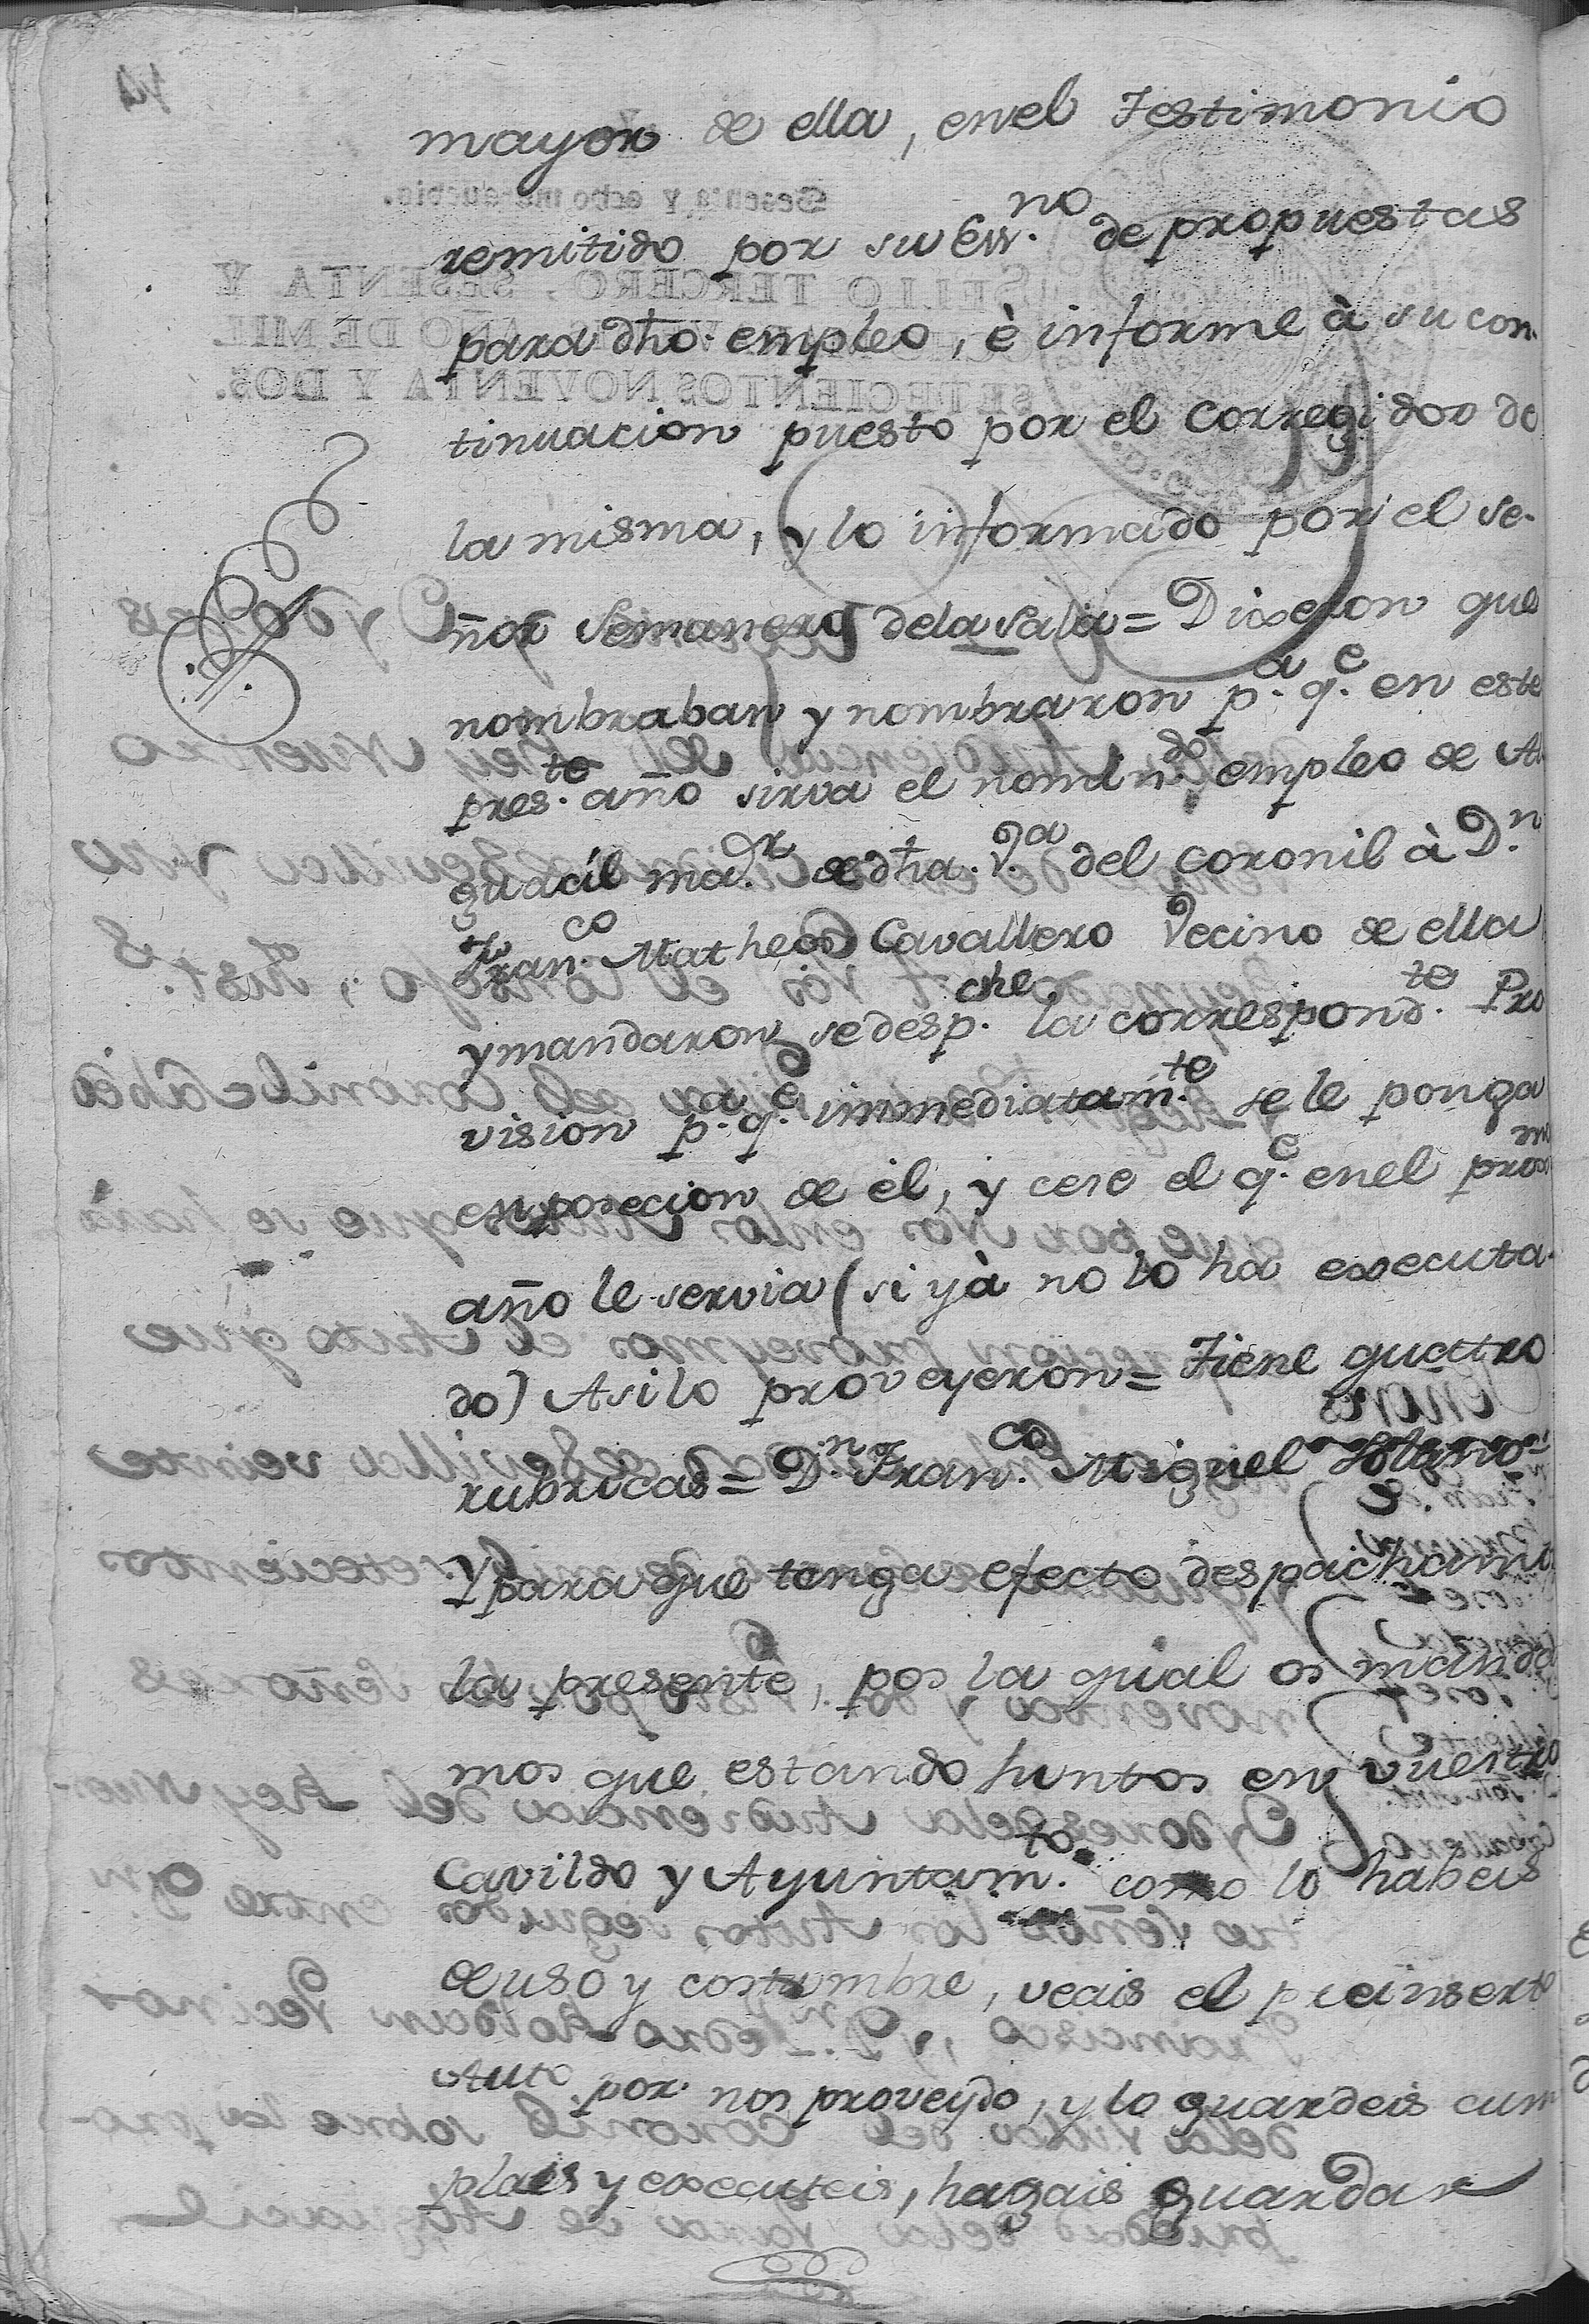 mayor de ella, en el Testimonio
remitido por su Essno. de propuestas
para dho. empleo, è informe à su con-
tinuacion puesto por el Corregidor de
la misma, y lo informado por el se-
ñor Semanero dela sala = Dixeron que
nombraban y nombraron pa. qe. en este
preste. año sirva el nomindo. empleo de Al-
guacil mar. de dha. Va. del coronil à Dn.
Franco. Matheos Cavallero Vecino de ella
y mandaron se despche. la correspondte. Pro
vision pa. qe. inmediatamte. se le ponga
en posecion de èl, y cese el qe. en el prox
año le servia (si yà no lo ha executa-
do) Asi lo proveyeron = Tiene quattro
rubricas = Dn. Franco. Miguel Solano =
Y para que tenga efecto despachamos
la presente, por la qual os manda
mos que estando juntos en vuestro
Cavildo y Ayuntamto. como lo habeis
de uso y costumbre, veais el preinserto
Auto por nos proveydo, y lo guardeis cum
plais y executeis, hagais guardar